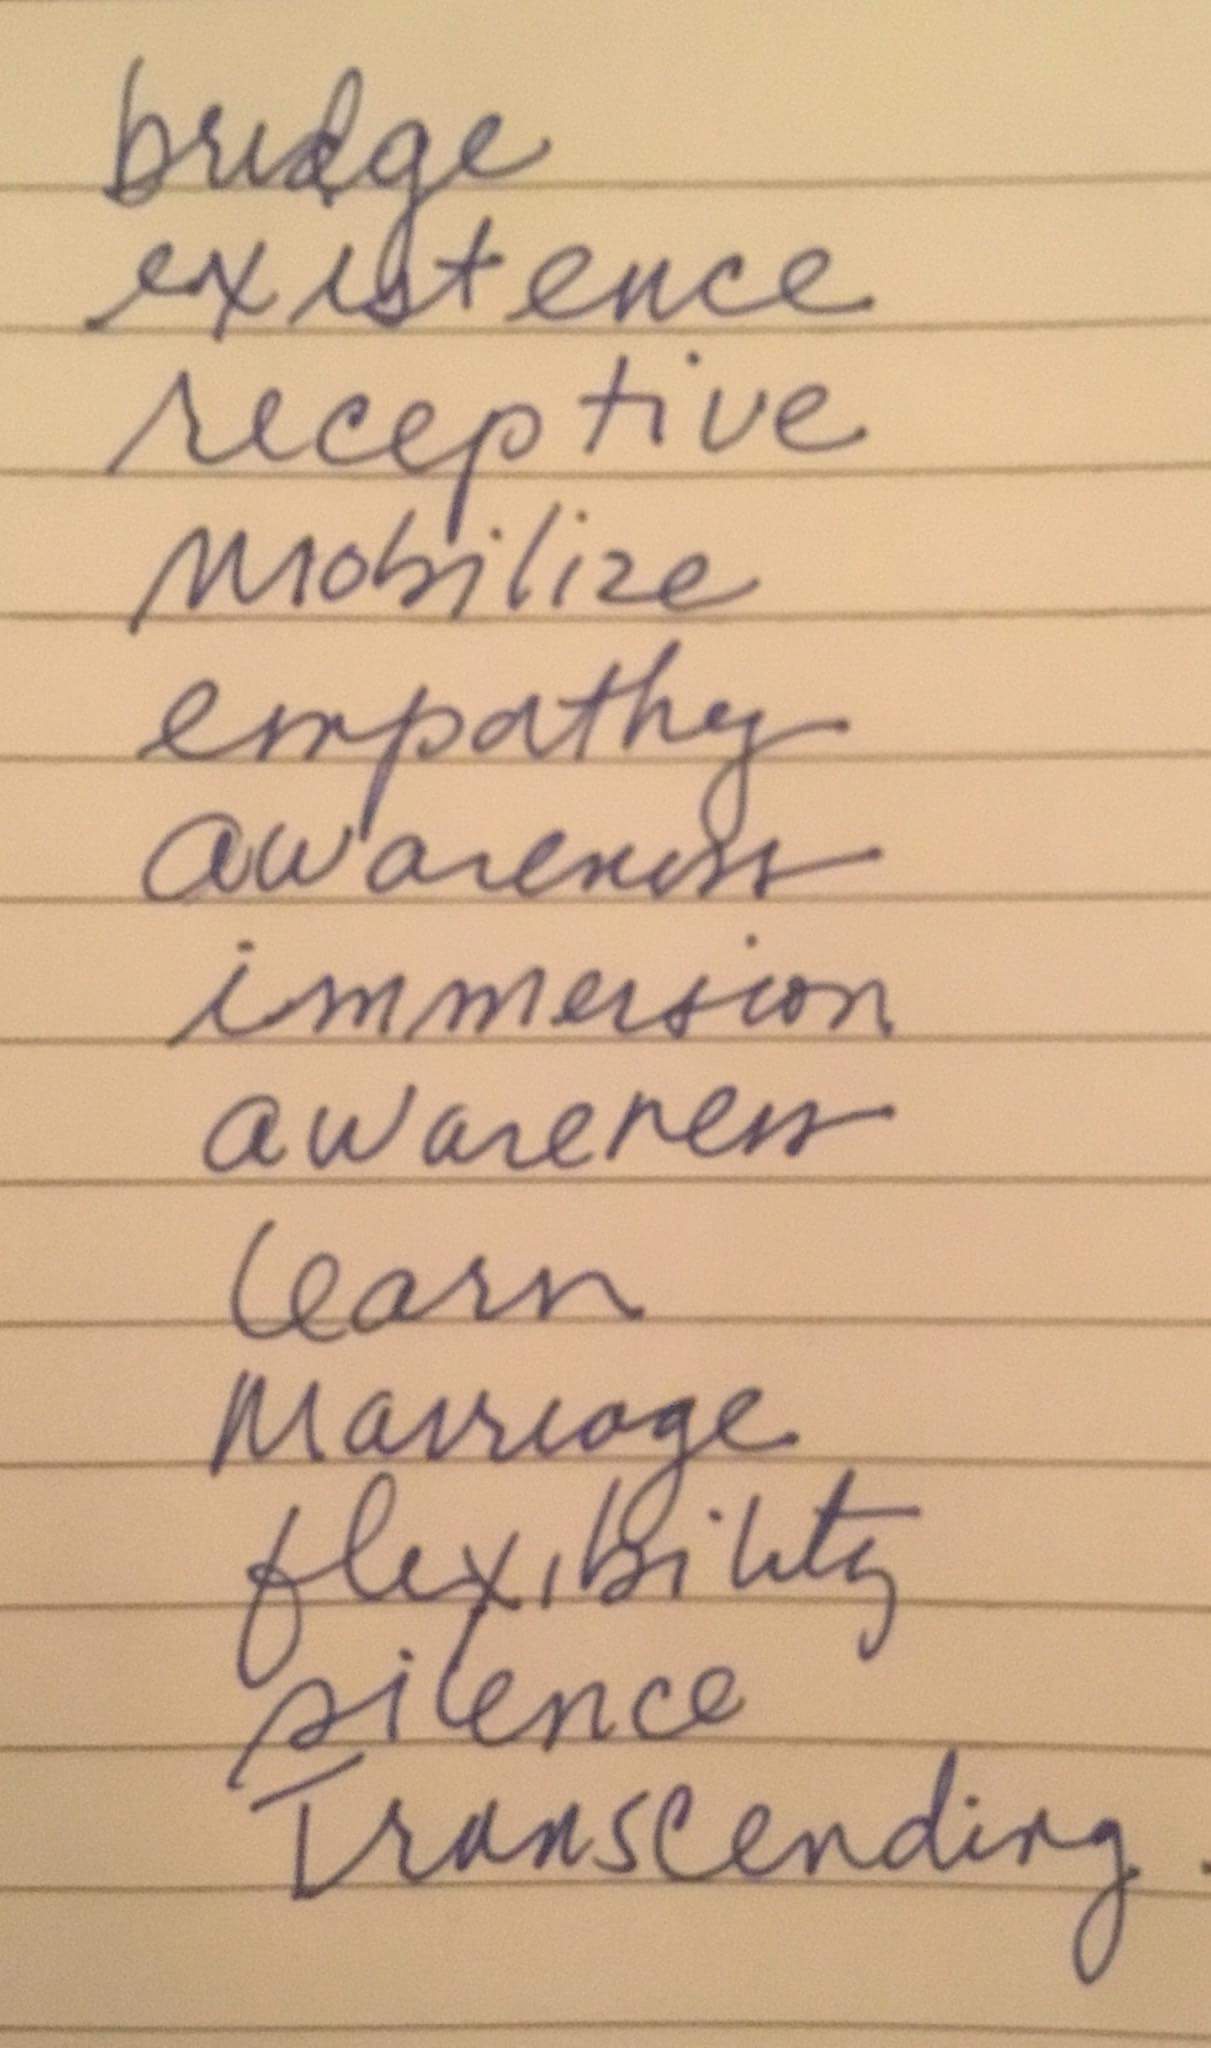 bridge
existence
receptive
mobilize
empathy
awareness
immersion
awareness
learn
Marriage
flexibility
silence
Transcending